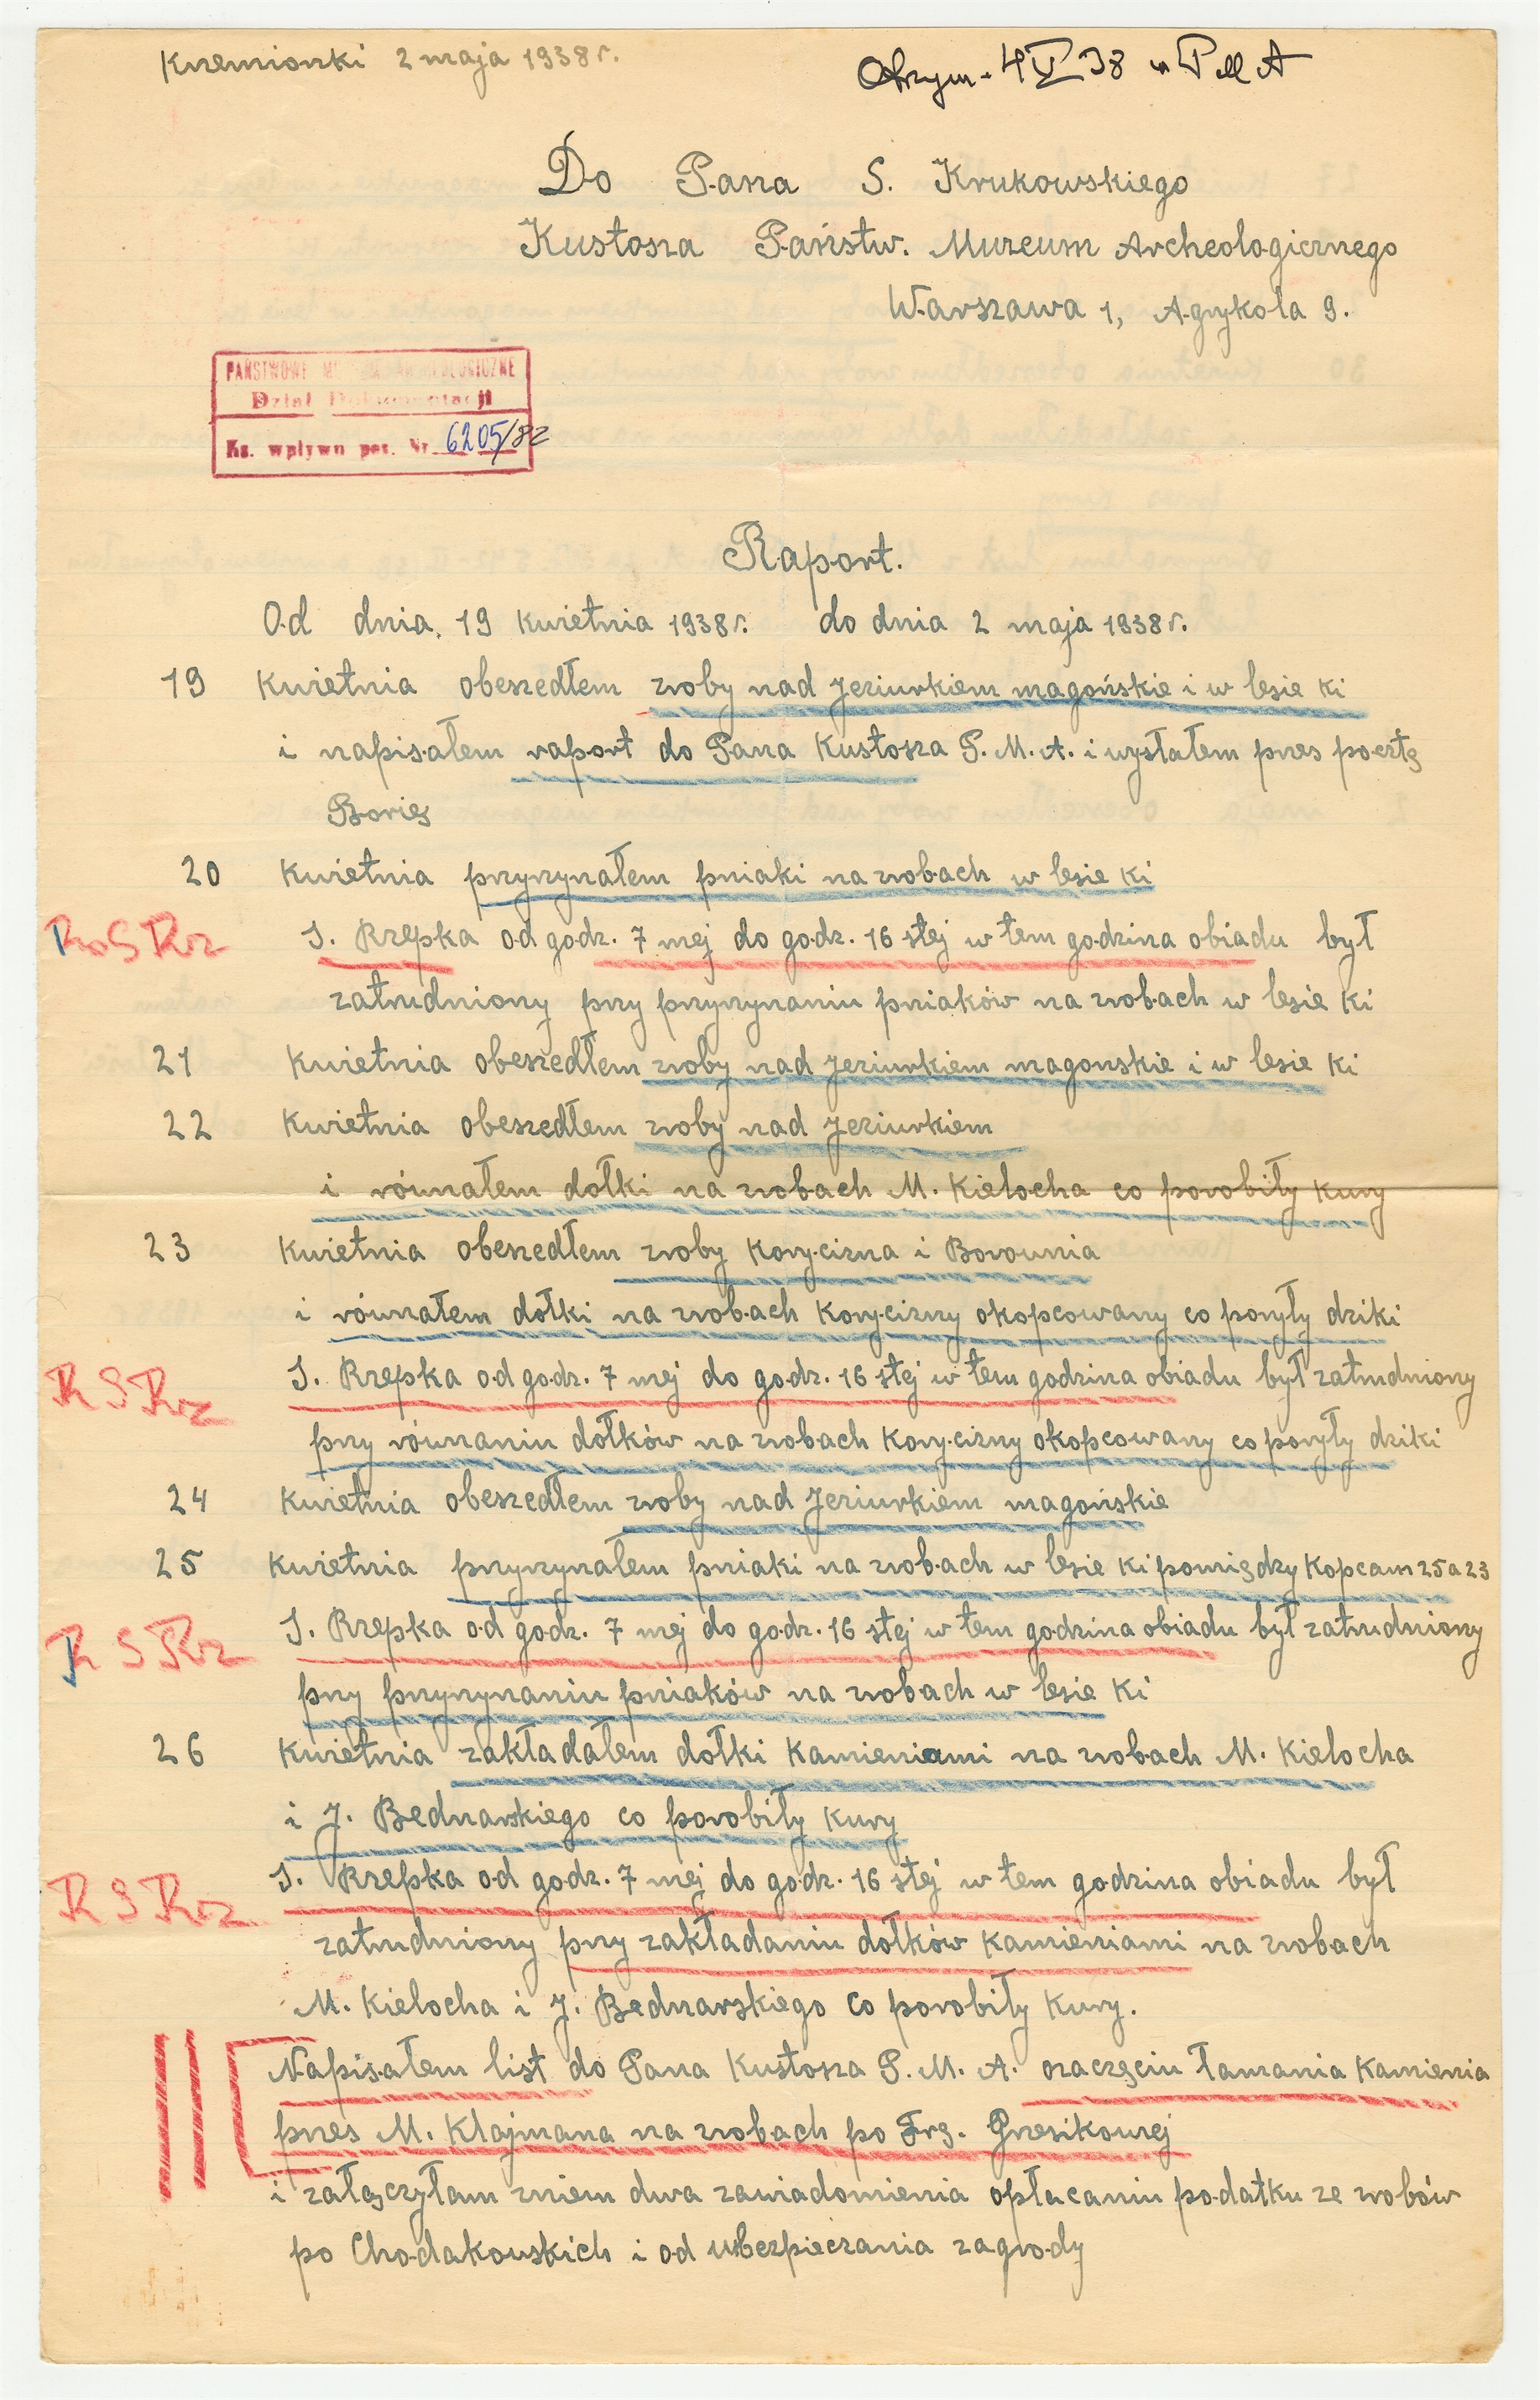 Krzemionki 2 maja 1938 r.
Otrzym. 4 V 38 w PMA
Do Pana S. Krukowskiego
Kustosza Państw. Muzeum Archeologicznego
Warszawa 1, Agrykola 9.
PAŃSTWOWE MUZEUM ARCHEOLOGICZNE
Dział Dokumentacji
Ks. wpływu poz. Nr 6205/82
Raport.
Od dnia, 19 kwietnia 1938 r. do dnia 2 maja 1938 r.
19 kwietnia obeszedłem zroby nad Jeziurkiem magońskie i w lesie ki
i napisałem raport do Pana Kustosza P. M. A. i wysłałem przes pocztę
Borię
20 kwietnia przyrzynałem pniaki na zrobach w lesie ki
S. Rzepka od godz. 7 mej do godz. 16 stej w tem godzina obiadu był
zatrudniony przy przyrzynaniu pniaków na zrobach w lesie ki
21 kwietnia obeszedłem zroby nad Jeziurkiem magonskie i w lesie ki
22 kwietnia obeszedłem zroby nad Jeziurkiem
i równałem dołki na zrobach M. Kielocha co porobiły kury
23 kwietnia obeszedłem zroby Korycizna i Borownia
i równałem dołki na zrobach Korycizny okopcowany co poryły dziki
R S Rz S. Rzepka od godz. 7 mej do godz. 16 stej w tem godzina obiadu był zatrudniony
przy równaniu dołków na zrobach Korycizny okopcowany co poryły dziki
24 kwietnia obeszedłem zroby nad Jeziurkiem magońskie
25 kwietnia przyrzynałem pniaki na zrobach w lesie ki pomiędzy Kopcam 25 a 23
R S Rz S. Rzepka od godz. 7 mej do godz. 16 stej w tem godzina obiadu był zatrudniony
przy przyrzynaniu pniaków na zrobach w lesie ki
26 kwietnia zakładałem dołki kamieniami na zrobach M. Kielocha
i J. Bednarskiego co porobiły kury
R S Rz S. Rzepka od godz. 7 mej do godz. 16 stej w tem godzina obiadu był
zatrudniony przy zakładaniu dołków kamieniami na zrobach
M. Kielocha i J. Bednarskiego co porobiły kury.
Napisałem list do Pana Kustosza P. M. A. ozaczęciu łamania kamienia
przes M. Klajmana na zrobach po Frg. Grzesikowej
i załączyłam zniem dwa zawiadomienia opłacaniu podatku ze zrobów
po Chodakowskich i od ubezpieczania zagrody